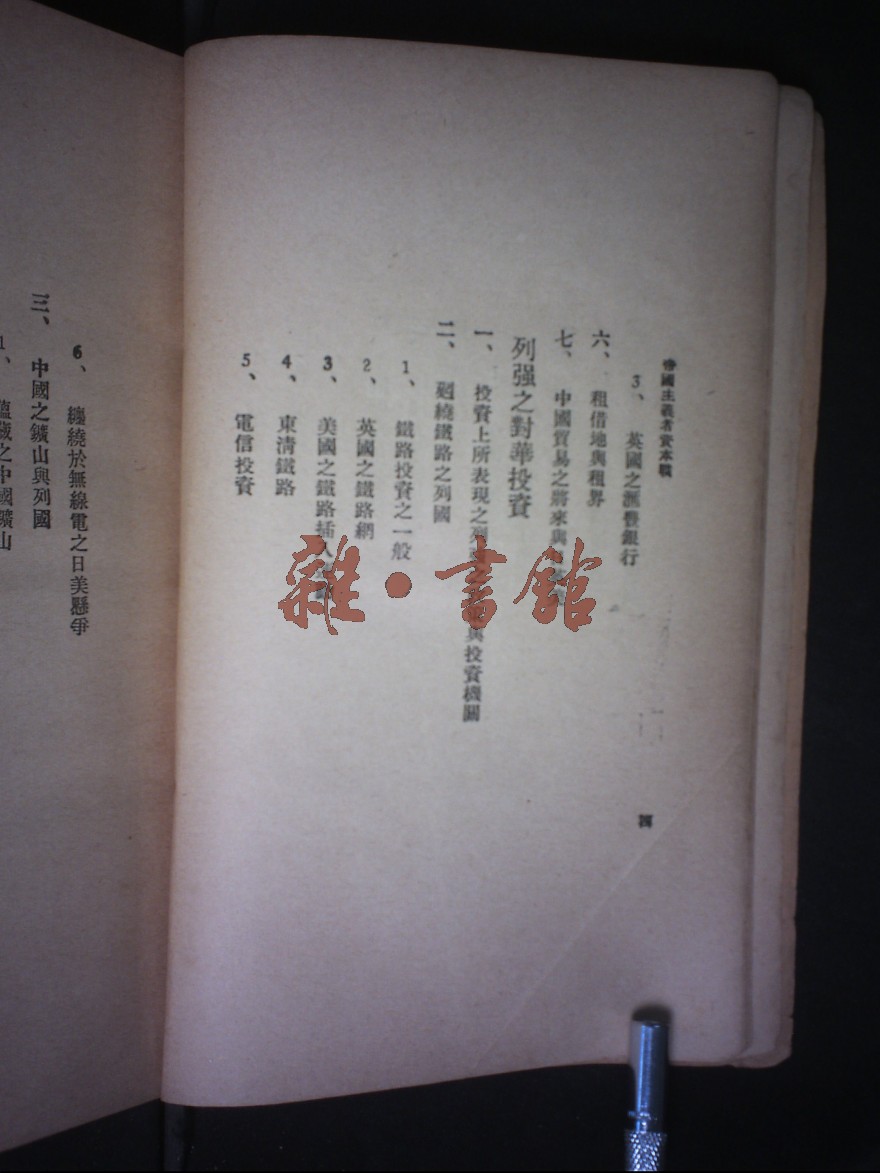 帝國主義者資本戰
3、英國之滙豐銀行
六、租借地與租界
七、中國貿易之將來與
列强之對華投資
一、投資上所表現之列 之 與投資機關
二、廻繞鐵路之列國
1、鐵路投資之一般
2、英國之鐵路網
3、美國之鐵路插入
4、東淸鐵路
5、電信投資
四
6、纏繞於無線電之日美懸爭
三、中國之鑛山與列國
1、蘊藏之中國鑛山
雜·書館